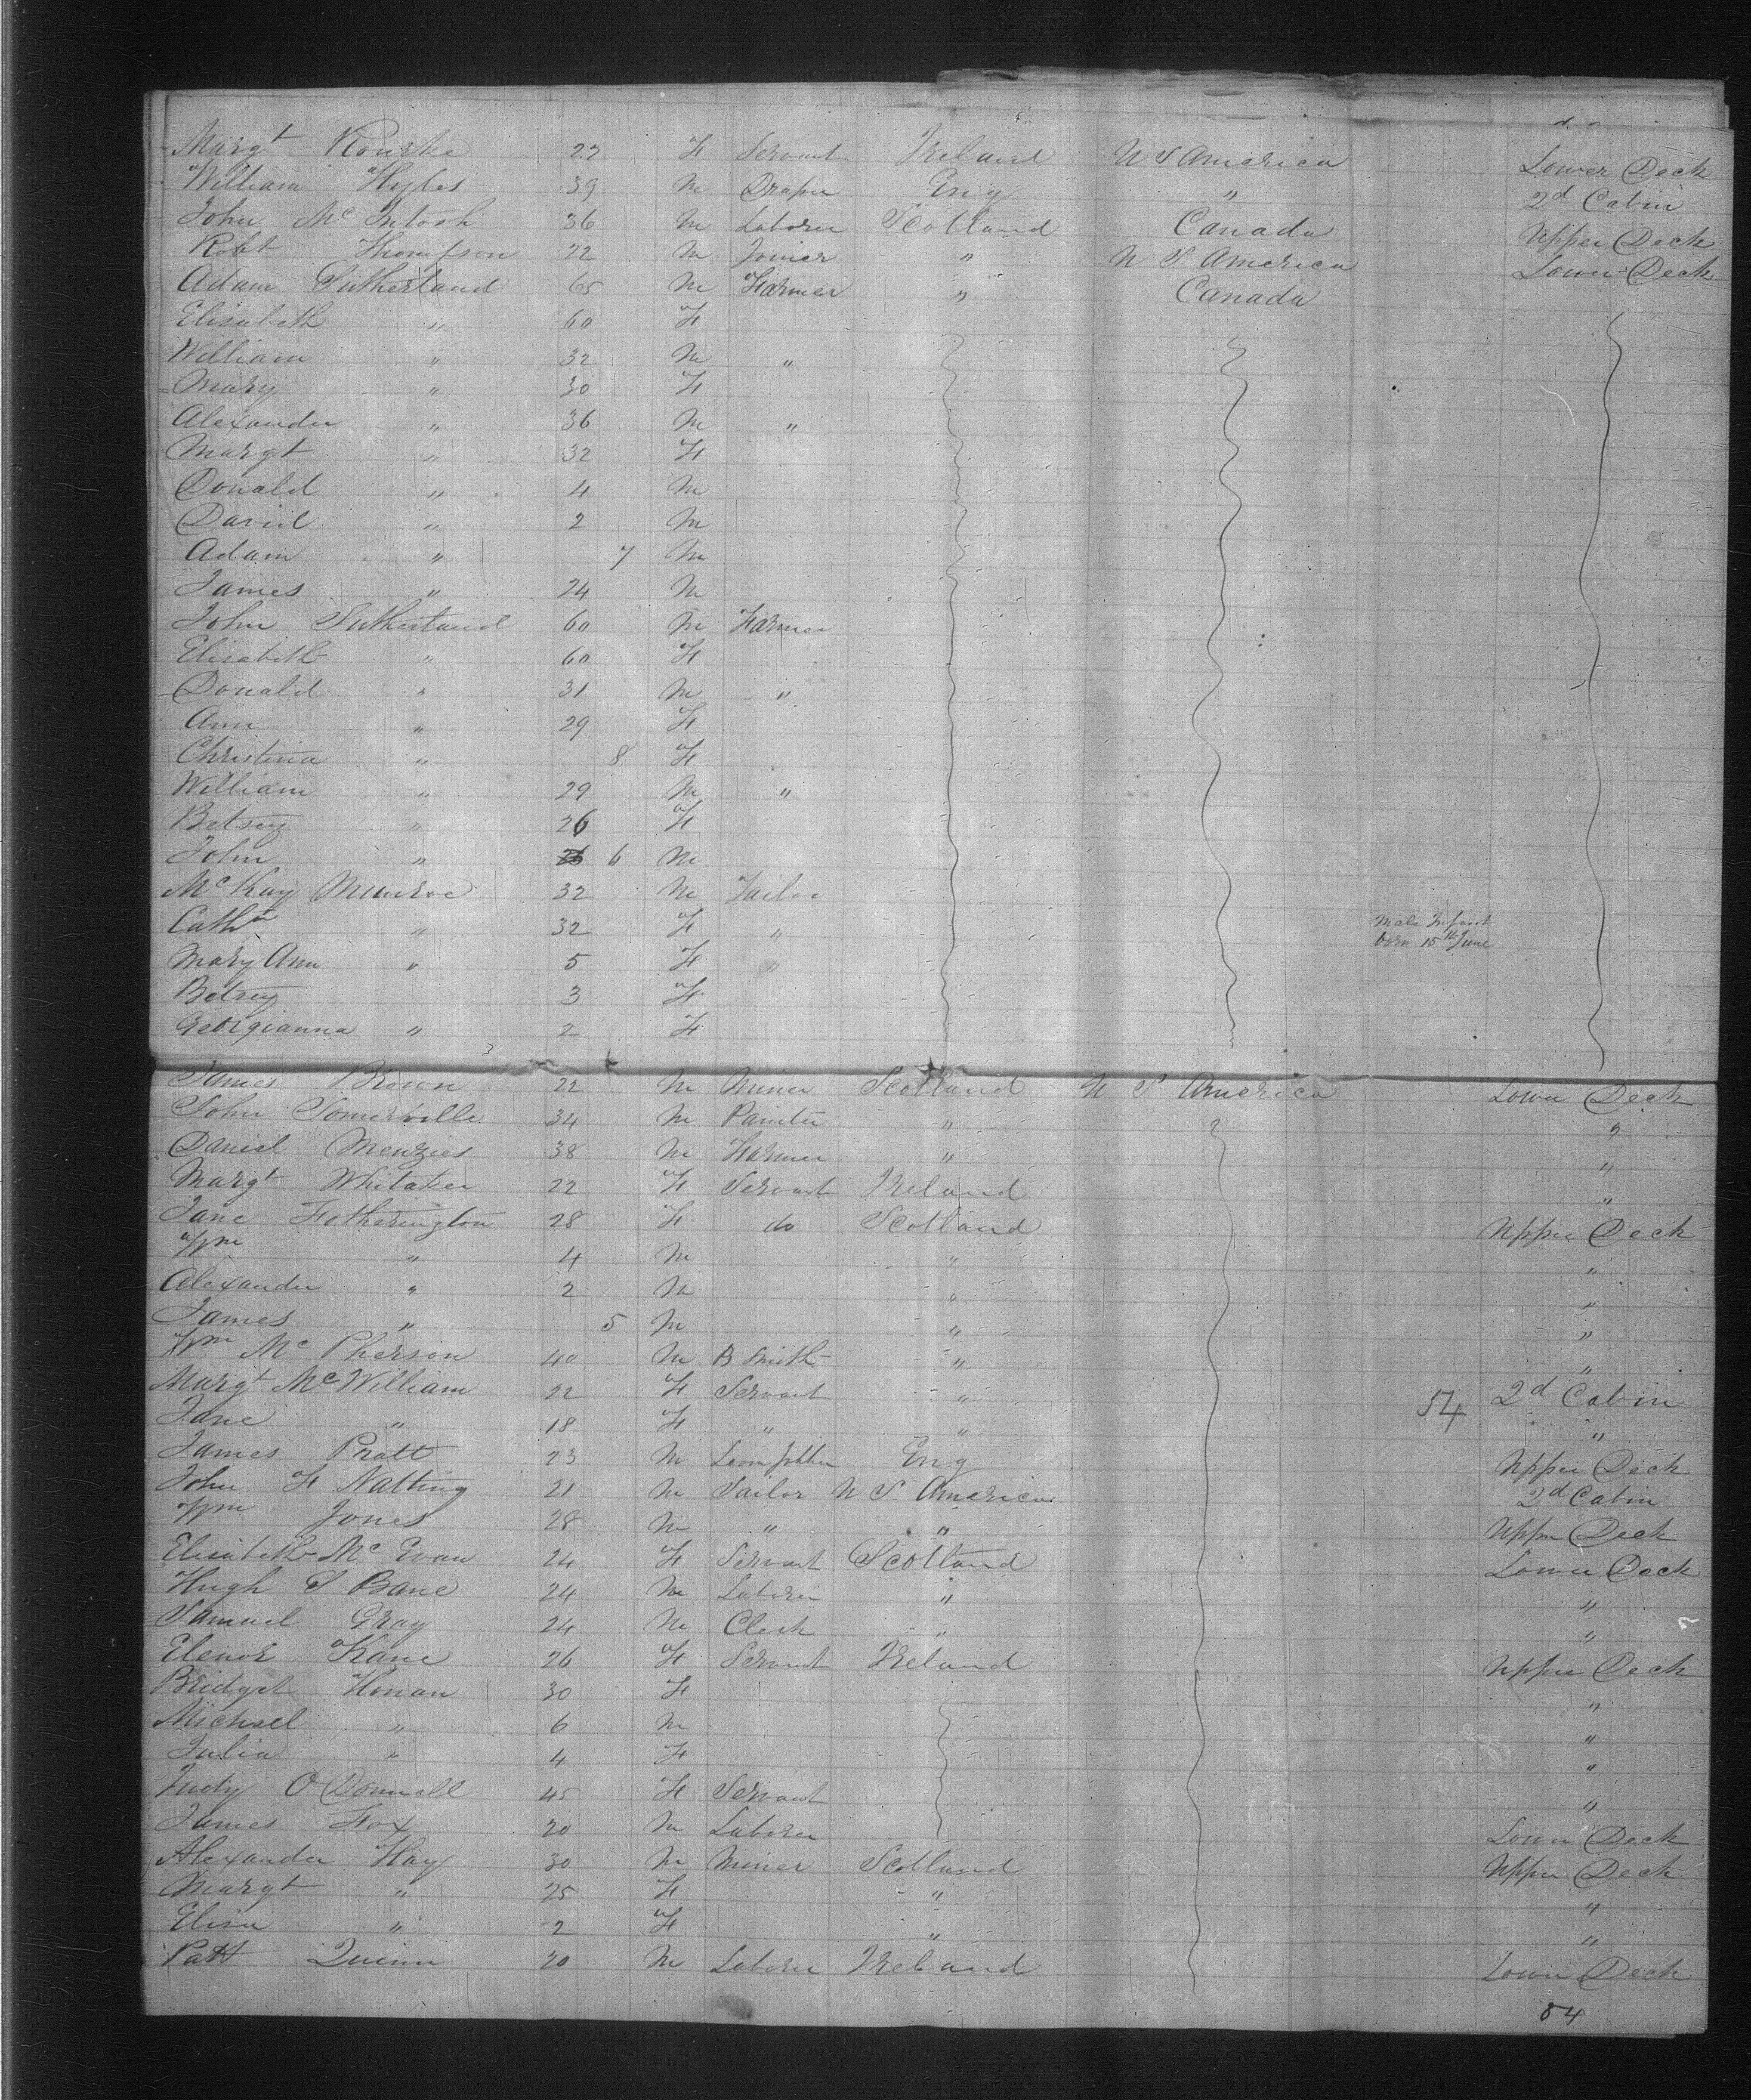 Margt Rourke 22 F Servant Ireland U S America Lower Deck
William Hyles 39 M Draper Eng " 2d Cabin
John McIntosh 36 M Laborer Scotland Canada Upper Deck
Robt Thompson 22 M Joiner " U S America Lower Deck
Adam Sutherland 65 M Farmer " Canada
Elisabeth " 60 F
William " 32 M "
Mary " 30 F
Alexander " 36 M "
Margt " 32 F
Donald " 4 M
David " 2 M
Adam " 7 M
James " 24 M
John Sutherland 60 M Farmer
Elisabeth " 60 F
Donald " 31 M "
Ann " 29 F
Christina " 8 F
William " 29 M "
Betsey " 26 F
John " 6 M
McKay Munroe 32 M Tailor
Cathn " 32 F " Male Infant
born 15th June
Mary Ann " 5 F "
Betsey 3 F
Georgianna " 2 F
James Brown 22 M Miner Scotland U S America Lower Deck
John Somerville 34 M Painter " "
Daniel Menzies 38 M Farmer " "
Margt Whitaker 22 F Servant Ireland "
Jane Fotherington 28 F do Scotland Upper Deck
Wm " 4 M " "
Alexander " 2 M " "
James " 5 M " "
Wm McPherson 40 M B Smith " "
Margt McWilliam 22 F Servant " 54 2d Cabin
Jane " 18 F " " "
James Pratt 23 M Eng Upper Deck
John F Natting 21 M Sailor U S America 2d Cabin
Wm Jones 28 M " " Upper Deck
Elisabeth McEvan 24 F Servant Scotland Lower Deck
Hugh S Bane 24 M Laborer " "
Samuel Gray 24 M Clerk " "
Elenor Kane 26 F Servant Ireland Upper Deck
Bridget Honan 30 F "
Michael " 6 M "
Julia " 4 F "
Judy O Donnell 45 F Servant "
James Fox 20 M Laborer Lower Deck
Alexander Hay 30 M Miner Scotland Upper Deck
Margt " 25 F " "
Elisa " 2 F " "
Patt Quinn 20 M Laborer Ireland Lower Deck
54